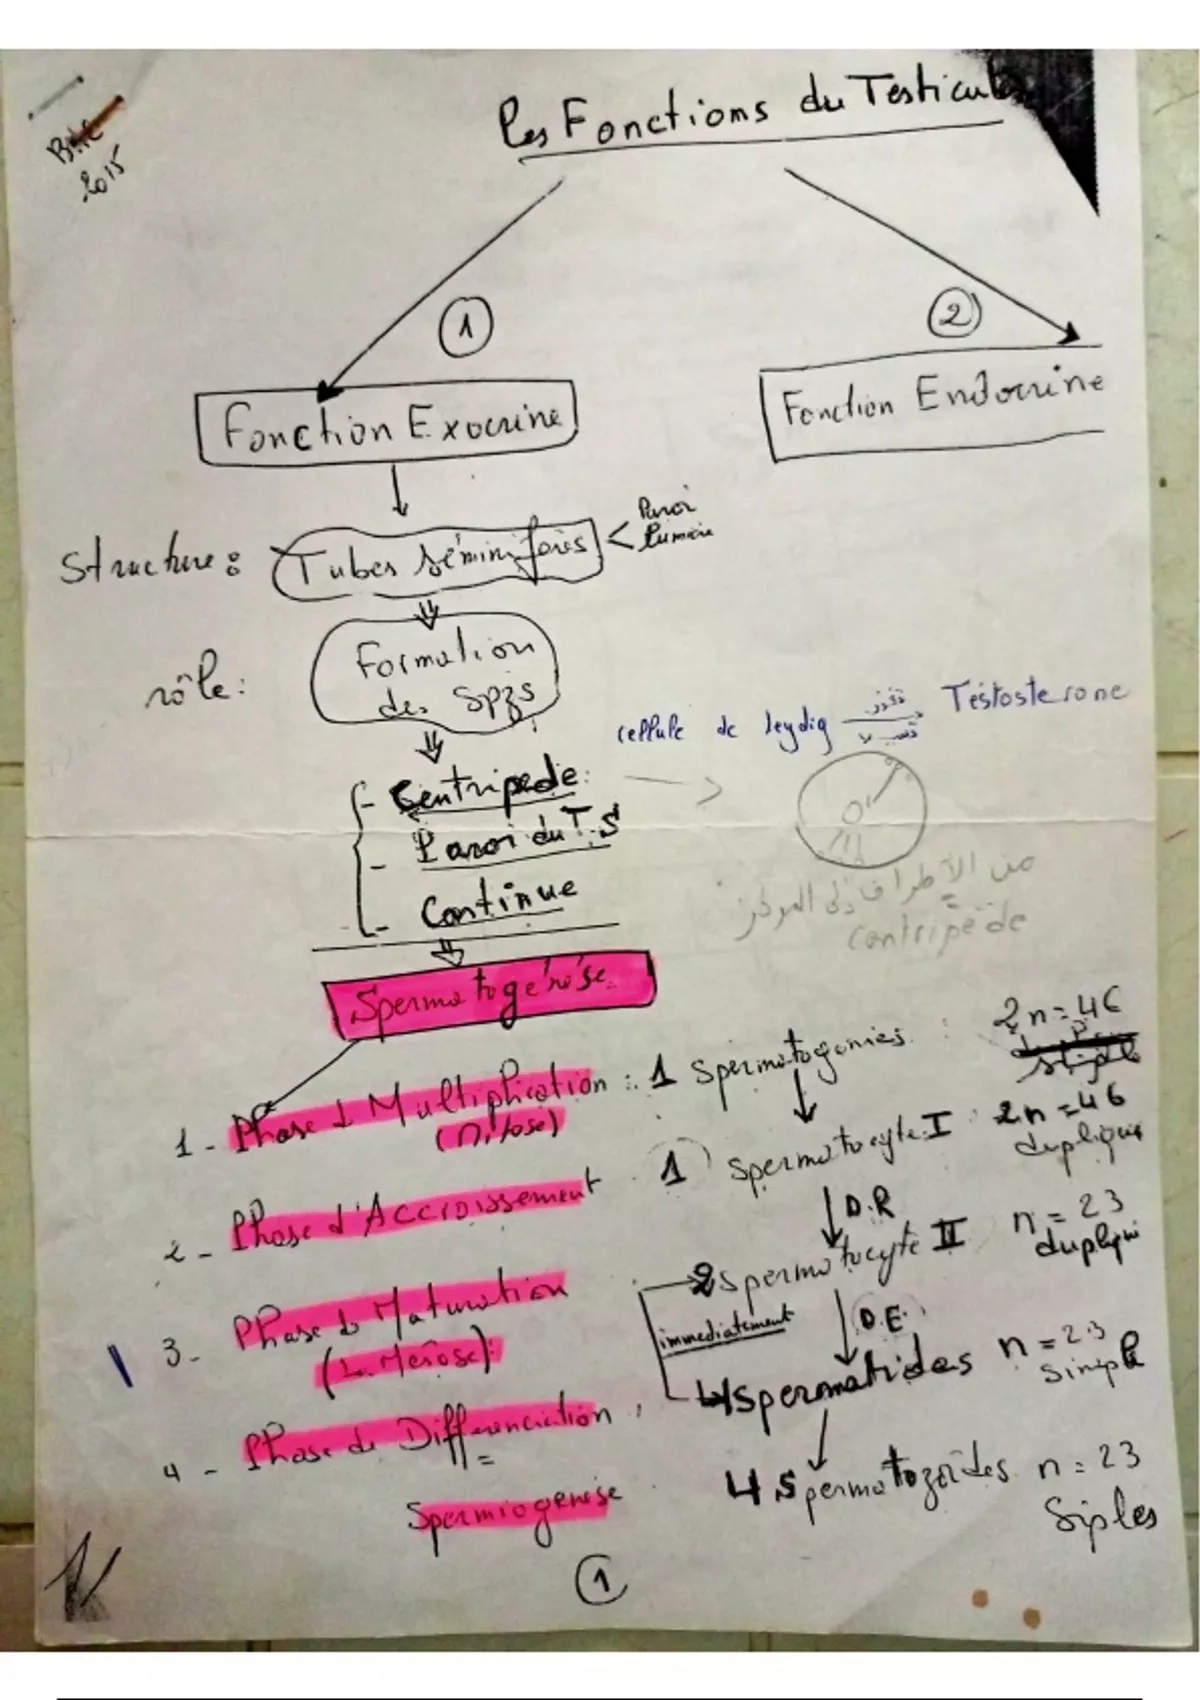 2015
Les Fonctions du Testicule
1
2
Fonction Exocrine
Fonction Endocrine
Structure :
Tubes séminifores
Paroi
Lumière
rôle :
Formation
des Spzs
cellule de leydig
تفرز
Testosterone
- Centripede
- Paroi du T.S
- Continue
من الأطراف إلى المركز
centripède
Spermatogénése
1 - Phase d Multiplication : 1 spermatogonies : 2n = 46
(Mitose)
2 - Phase d'Accroissement 1 spermatocyte I : 2n = 46
dupliqué
D.R
3 - Phase de Maturation 2 spermatocyte II n = 23
dupliqué
(La Meïose) :
immediatement
D.E
4 spermatides n = 23
simple
4 - Phase de Differenciation :
=
Spermiogenese
4 Spermatozoïdes n = 23
Siples
1